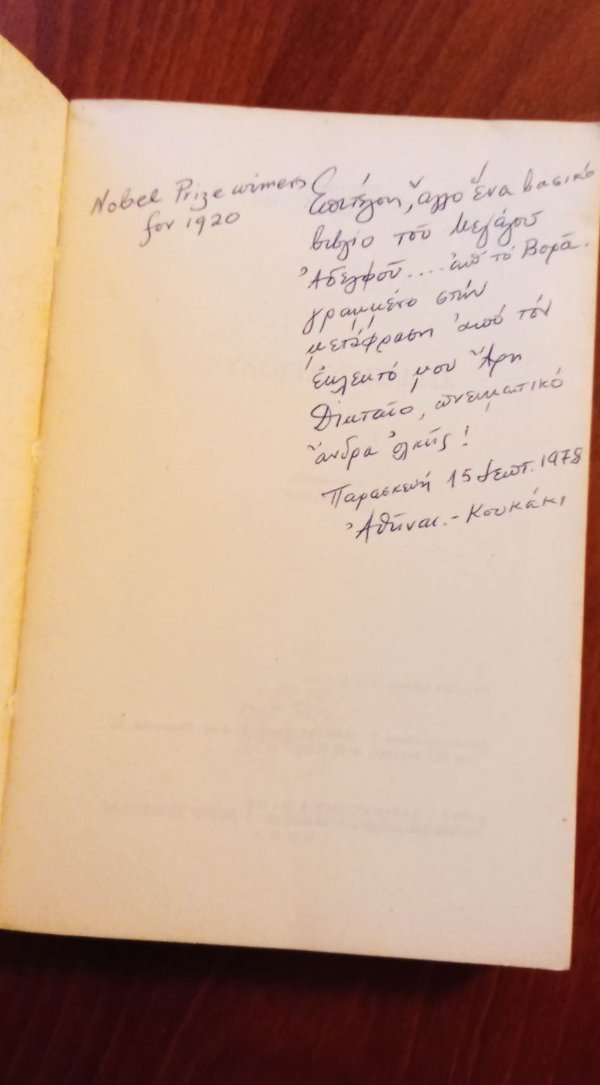 Nobel Prize winners
for 1920
Ἐπιτέλους, ἄλλο ἕνα βασικό
βιβλίο τοῦ Μεγάλου
Ἀδελφοῦ.... ἀπ' τό Βορᾶ.
γραμμένο στήν
μετάφραση ἀπό τόν
ἐκλεκτό μου Ἄρη
Δικταῖο, πνευματικό
ἄνδρα ὁλκῆς!
Παρασκευή 15 Σεπτ. 1978
Ἀθῆναι.- Κουκάκι